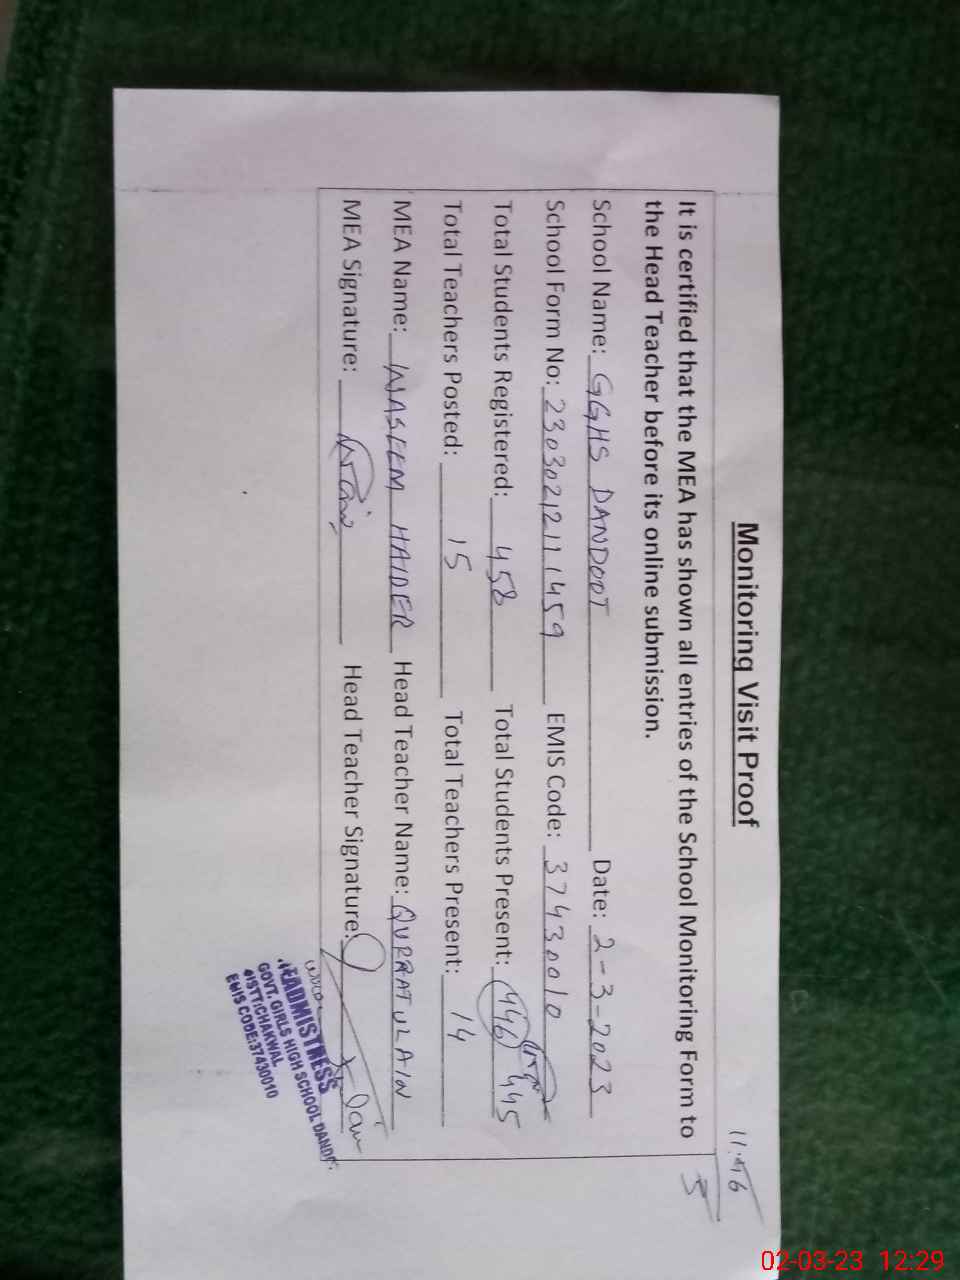 11:46
5
Monitoring Visit Proof
It is certified that the MEA has shown all entries of the School Monitoring Form to
the Head Teacher before its online submission.
School Name: GGHS DANDOOT Date: 2-3-2023
School Form No: 2303021211459 EMIS Code: 37430010
Total Students Registered: 458 Total Students Present: 446 445
Total Teachers Posted: 15 Total Teachers Present: 14
MEA Name: WASEEM HAIDER Head Teacher Name: QURRATULAIN
MEA Signature: Head Teacher Signature:
HEADMISTRESS
GOVT. GIRLS HIGH SCHOOL DANDO
DISTT:CHAKWAL
EMIS CODE:37430010
02-03-23 12:29